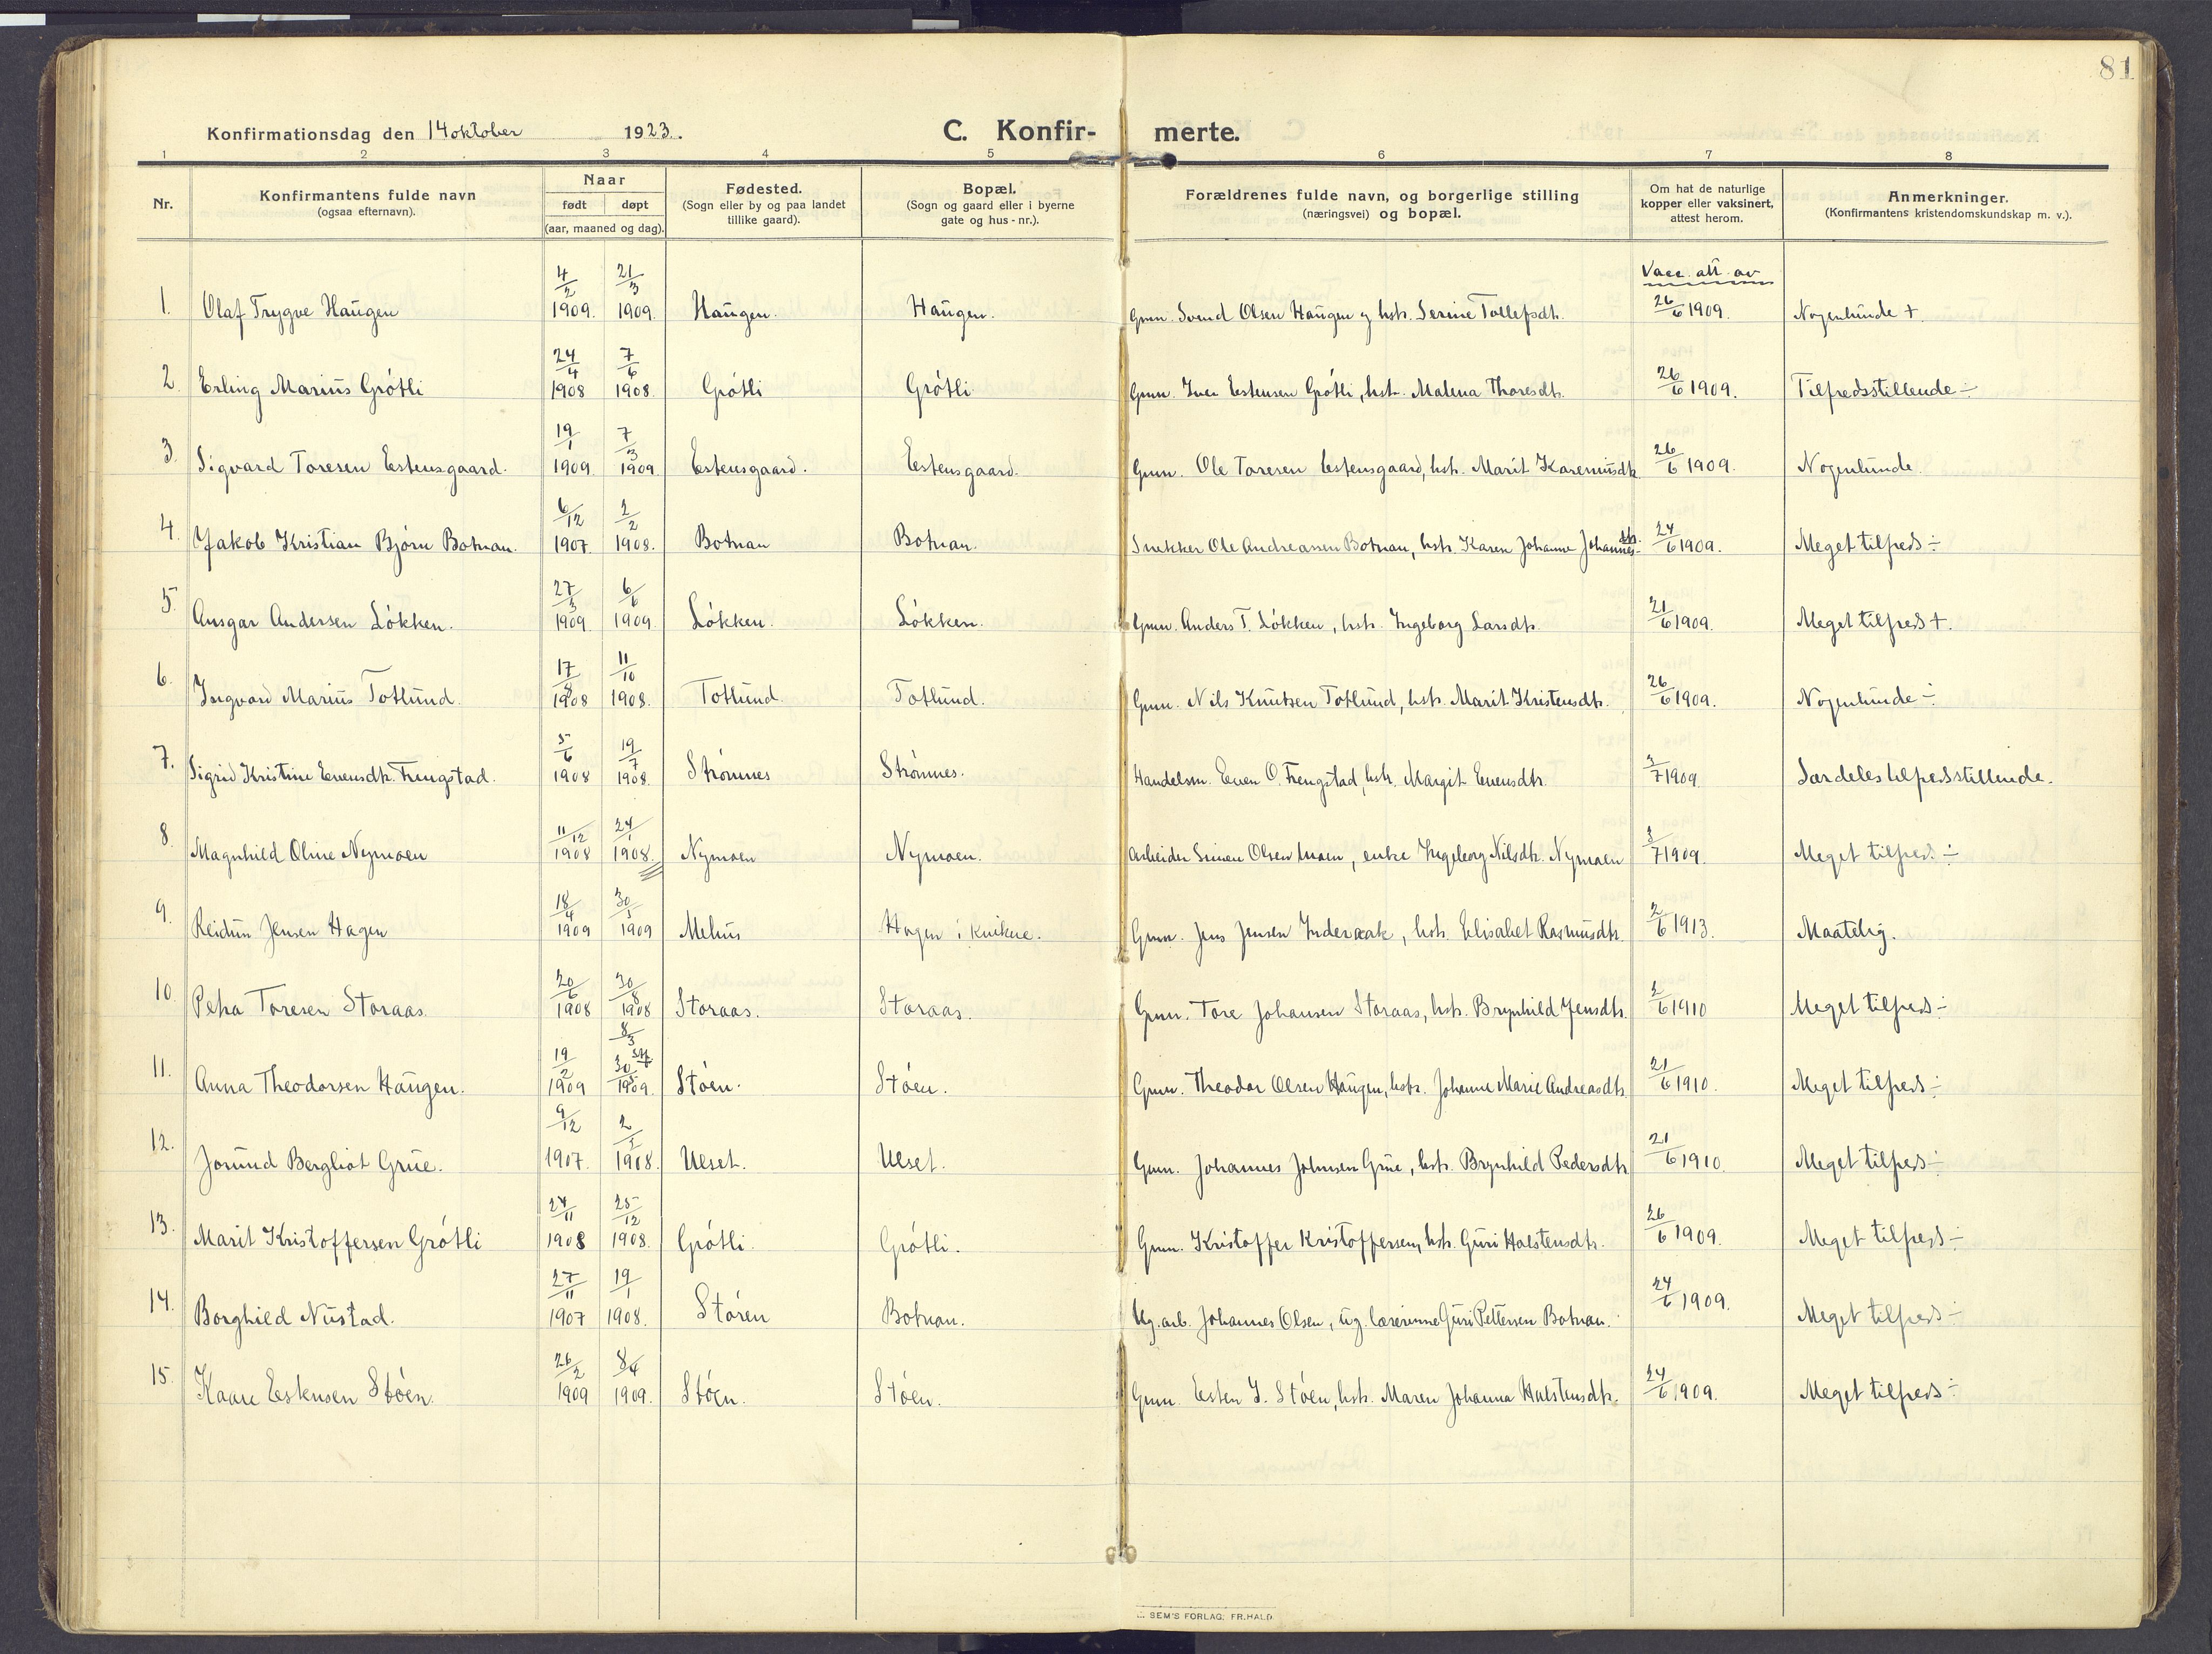 81
Konfirmationsdag den 14 oktober 1923. C. Konfir- merte.
1 2 3 4 5 6 7 8
Nr. Konfirmantens fulde navn (ogsaa efternavn). Naar født døpt (aar, maaned og dag). Fødested. (Sogn eller by og paa landet tillike gaard). Bopæl. (Sogn og gaard eller i byerne gate og hus-nr.). Forældrenes fulde navn, og borgerlige stilling (næringsvei) og bopæl. Om hat de naturlige kopper eller vaksinert, attest herom. Anmerkninger. (Konfirmantens kristendomskundskap m. v.).
Vacc. att. av
1. Olaf Trygve Haugen 4/2 1909. 21/3 1909. Haugen. Haugen. Gmn. Svend Olsen Haugen og hstr. Serine Tollefsdtr. 26/6 1909. Nogenlunde +
2. Erling Marius Grótli 24/4 1908 7/6 1908. Grótli Grótli Gmn. Iver Estensen Grótli, hstr. Malena Thoresdtr. 26/6 1909. Tilfredsstillende ÷
3. Sigvard Toresen Estensgaard. 19/1 1909. 7/3 1909 Estensgaard. Estensgaard. Gmn. Ole Toresen Estensgaard, hstr. Marit Karenusdtr. 26/6 1909. Nogenlunde.
4. Jakob Kristian Bjørn Botnan. 6/12 1907. 2/2 1908. Botnan Botnan. Snekker Ole Andreassen Botnan, hstr. Karen Johanne Johannesdtr. 24/6 1909. Meget tilfreds ÷
5. Ansgar Andersen Lókken. 27/3 1909. 6/6 1909 Lókken. Lókken. Gmn. Anders T. Lókken, hstr. Ingeborg Larsdtr. 21/6 1909. Meget tilfreds +.
6. Ingvard Marius Totlund. 17/8 1908 11/10 1908. Totlund. Totlund. Gmn. Nils Knutsen Totlund, hstr. Marit Kristensdtr. 26/6 1909. Nogenlunde ÷
7. Sigrid Kristine Evensdtr. Frengstad. 5/6 1908 19/7 1908. Strómnes Strómnes. Handelsm. Even O. Frengstad, hstr. Margit Evensdtr. 3/7 1909. Særdeles tilfredsstillende.
8. Magnhild Oline Nymoen 11/12 1908 24/1 1908. Nymoen Nymoen. Arbeider Simen Olsen Moen, enke Ingeborg Nilsdtr. Nymoen 3/7 1909. Meget tilfreds. ÷
9. Reidun Jensen Hagen 18/4 1909 30/5 1909 Mehus Hagen i Kvikne. Gmn. Jens Jensen Inderaak, hstr. Elisabet Rasmusdtr. 2/6 1913. Maatelig.
10. Petra Toresen Storaas. 20/6 1908 30/8 1908 Storaas. Storaas. Gmn. Tore Johansen Storaas, hstr. Brynhild Jensdtr. 2/6 1910 Meget tilfreds ÷
11. Anna Theodorsen Haugen. 19/2 1909 8/3 30/5 1909. Stóen. Stóen. Gmn. Theodor Olsen Haugen, hstr. Johanne Marie Andreasdtr. 21/6 1910. Meget tilfreds ÷
12. Jorund Bergliot Grue. 9/12 1907. 2/2 1908. Ulset. Ulset. Gmn. Johannes Johnsen Grue, hstr. Brynhild Pedersdtr 21/6 1910. Meget tilfreds ÷
13. Marit Kristoffersen Grótli 24/11 1908 25/12 1908. Grótli. Grótli. Gmn. Kristoffer Kristoffersen, hstr. Guri Halstensdtr. 26/6 1909. Meget tilfreds ÷
14. Borghild Nustad. 27/11 1907 19/1 1908. Stóren Botnan. Ug. arb. Johannes Olsen, ug. lærerinne Guri Pettersen Botnan. 24/6 1909. Meget tilfreds ÷
15. Kaare Estensen Stóen. 26/2 1909 8/4 1909. Stóen. Stóen. Gmn. Esten J. Stóen, hstr. Maren Johanna Halstensdtr. 24/6 1909. Meget tilfreds ÷
SEM'S FORLAG: FR. HALD